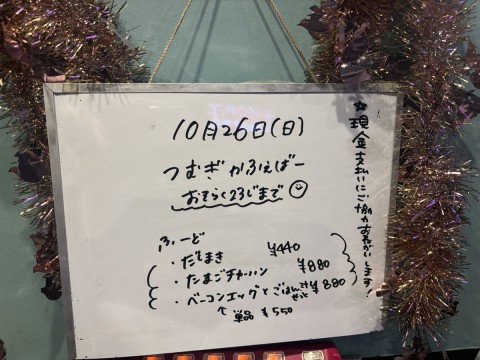 10月26日(日)
つむぎかふぇばー
おそらく23じまで
☆現金支払いにご協力お願いします!
ふーど
・だしまき ¥440
・たまごチャーハン ¥880
・ベーコンエッグとごはんみそしるせっと ¥880
↑単品 ¥550